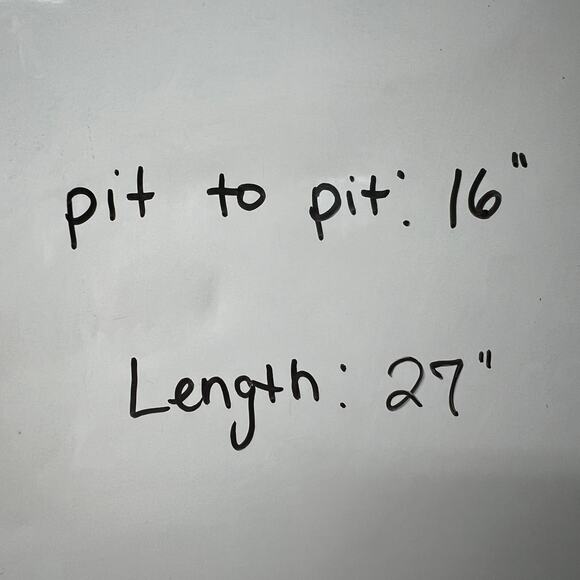 pit to pit: 16"
Length: 27"